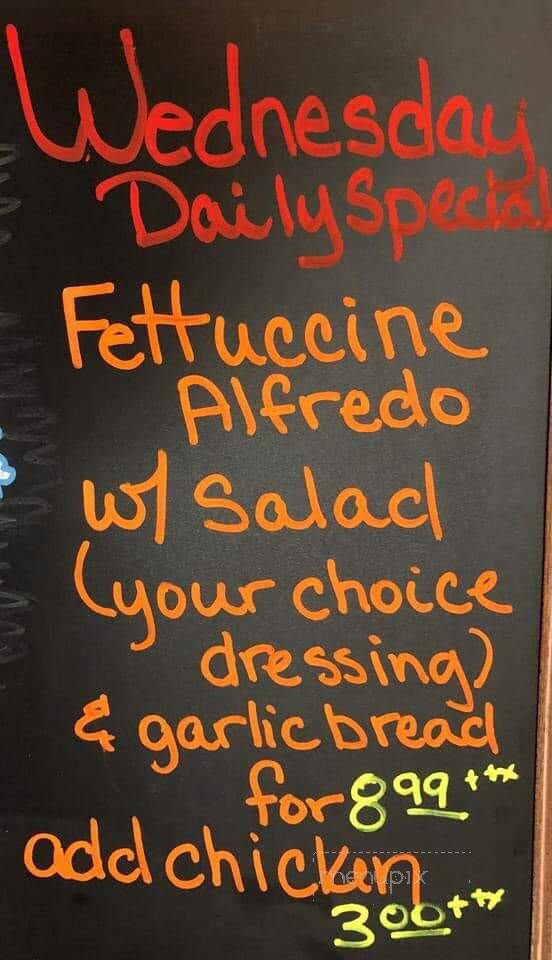 Wednesday
Daily Special
Fettuccine
Alfredo
w/ Salad
(your choice
dressing)
& garlic bread
for 8 99 + tx
add chicken
menupix
3 00 + tx